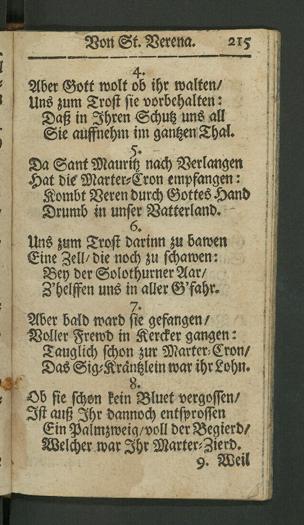 Von St. Verena. 215
4.
Aber Gott wolt ob ihr walten/
Uns zum Trost sie vorbehalten:
Daß in Ihren Schutz uns all
Sie auffnehm im gantzen Thal.
5.
Da Sant Mauritz nach Verlangen
Hat die Marter-Cron empfangen:
Kombt Veren durch Gottes Hand
Drumb in unser Vatterland.
6.
Uns zum Trost darinn zu bawen
Eine Zell/ die noch zu schawen:
Bey der Solothurner Aar/
Z'helffen uns in aller G'fahr.
7.
Aber bald ward sie gefangen/
Voller Frewd in Kercker gangen:
Tauglich schon zur Marter-Cron/
Das Sig-Kräntzlein war ihr Lohn.
8.
Ob sie schon kein Bluet vergossen/
Ist auß Ihr dannoch entsprossen
Ein Palmzweig/ voll der Begierd/
Welcher war Ihr Marter-Zierd.
9. Weil